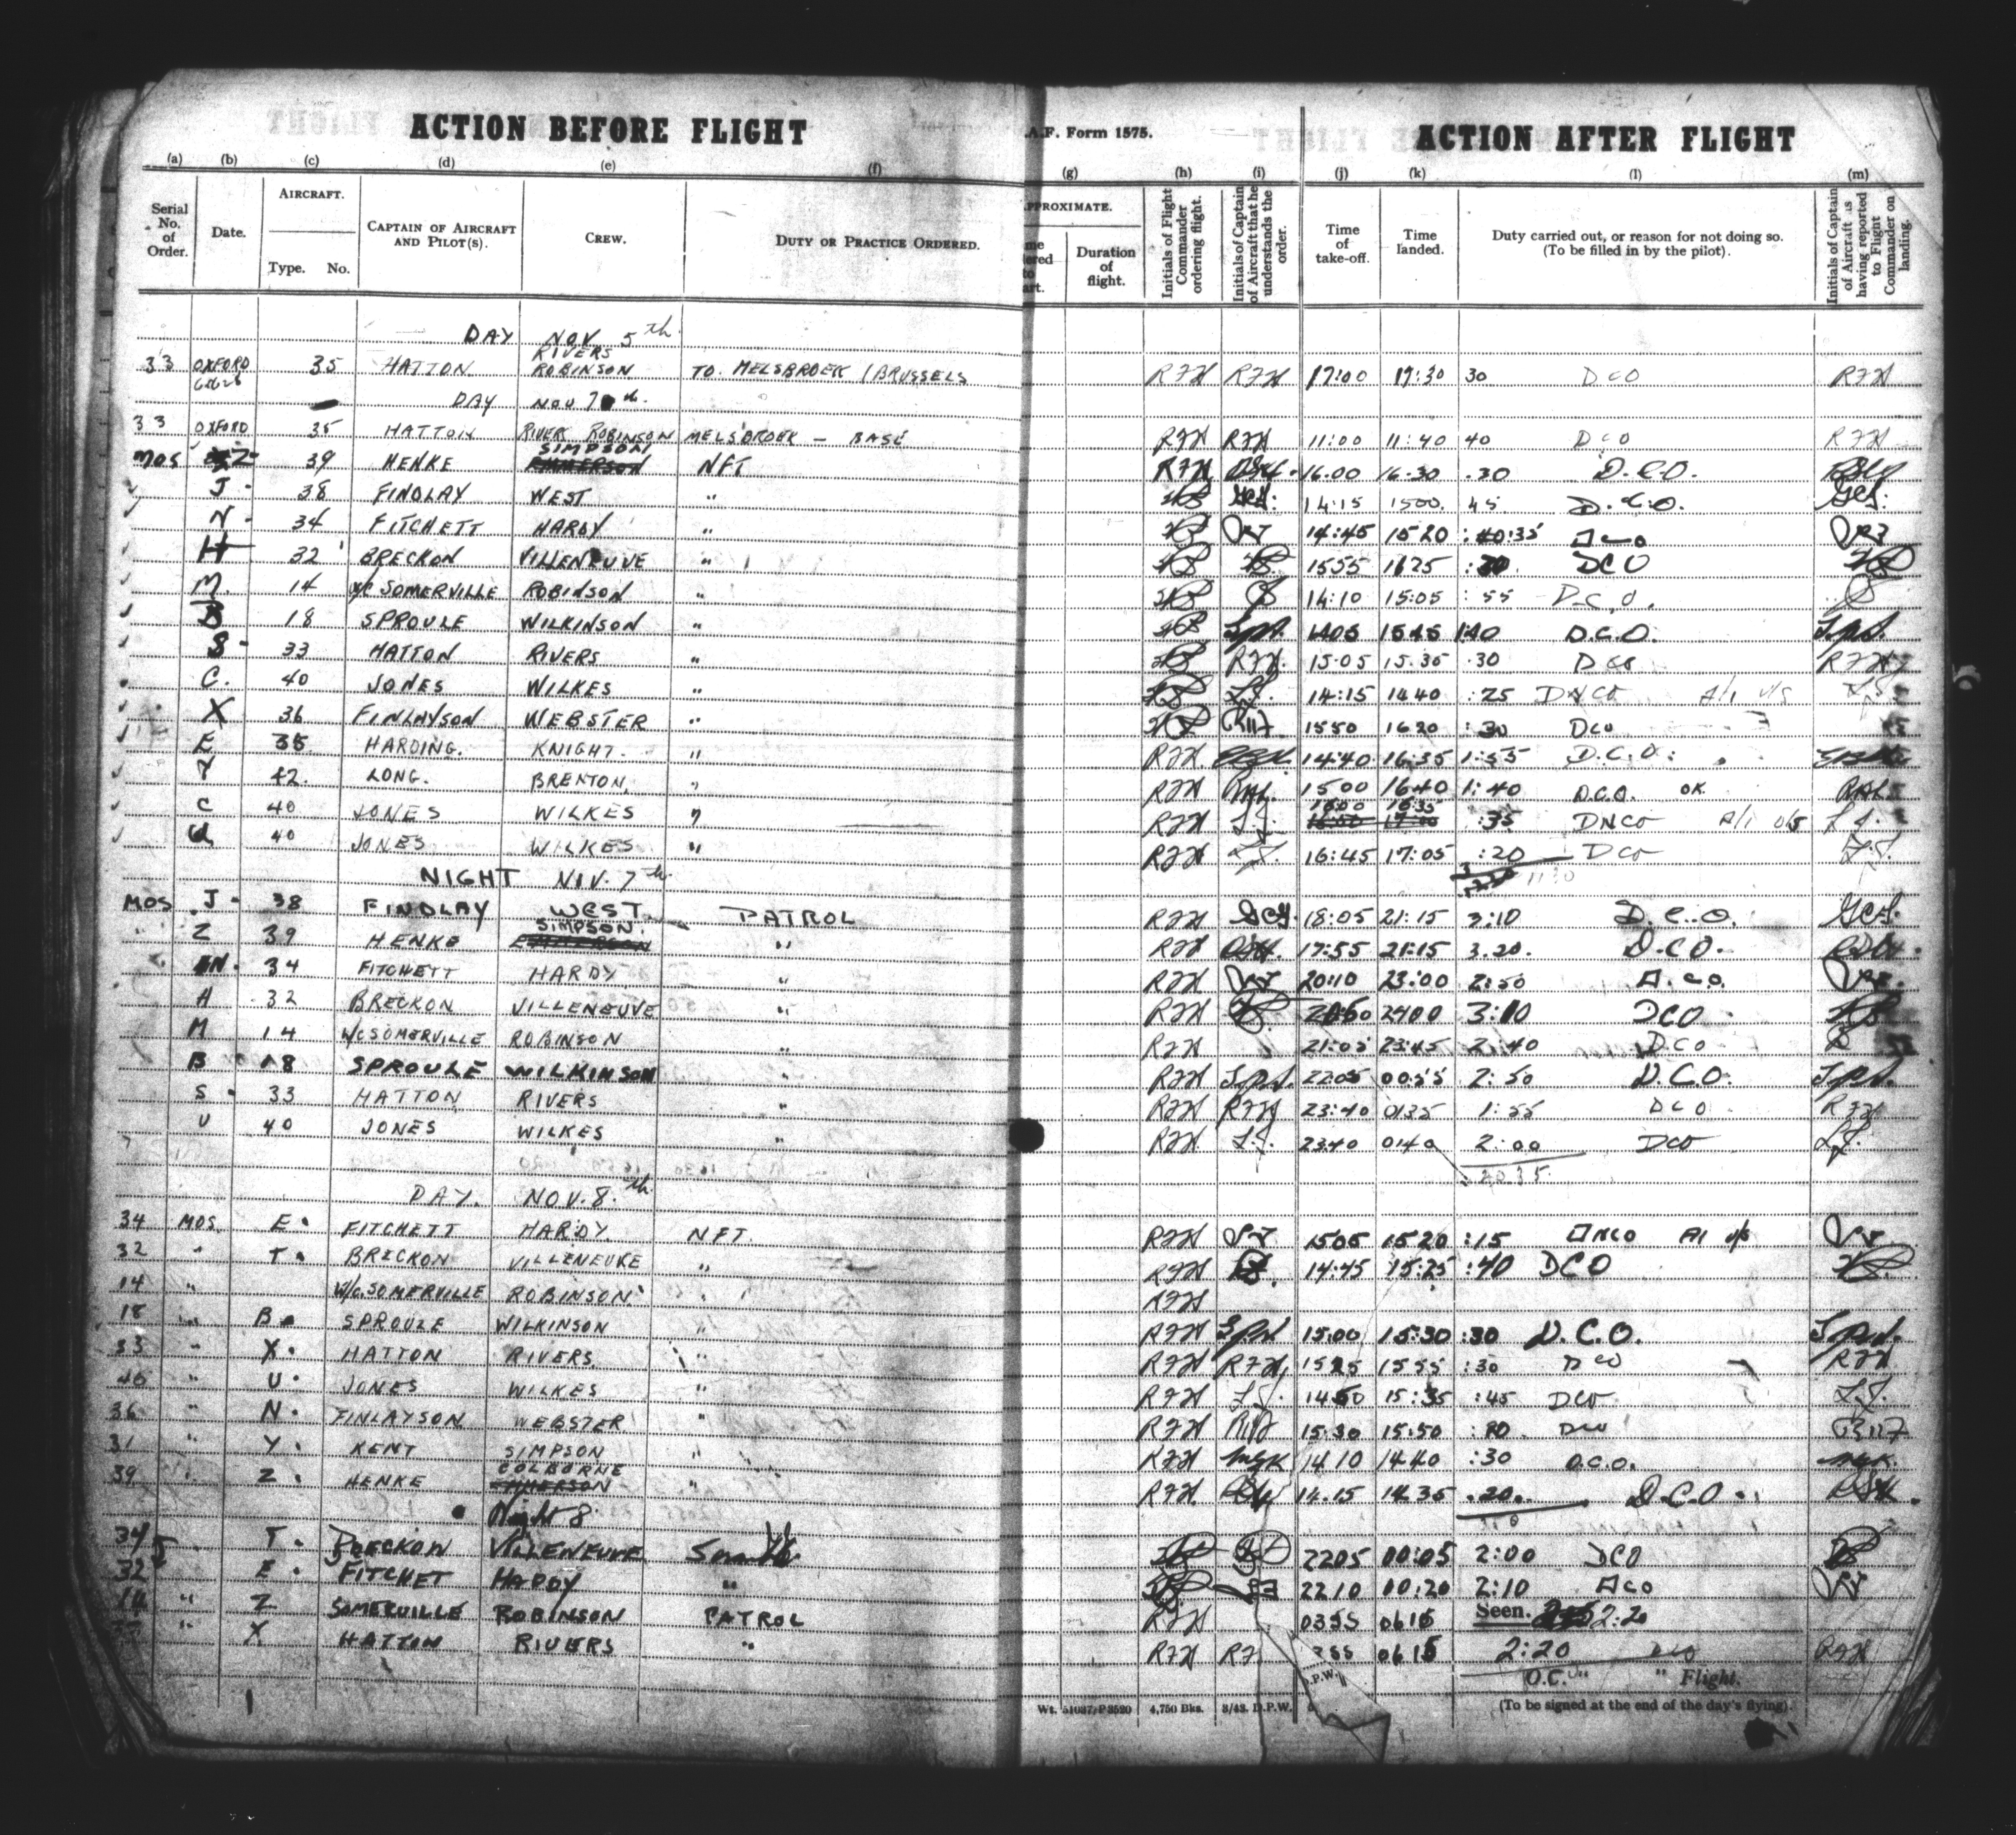 ACTION BEFORE FLIGHT
.A.F. Form 1575.
ACTION AFTER FLIGHT
(a) (b) (c) (d) (e) (f) (g) (h) (i) (j) (k) (l) (m)
Serial No. of Order.
Date.
AIRCRAFT.
Type. No.
CAPTAIN OF AIRCRAFT AND PILOT(S).
CREW.
DUTY OR PRACTICE ORDERED.
PPROXIMATE.
me ered to art.
Duration of flight.
Initials of Flight Commander ordering flight.
Initials of Captain of Aircraft that he understands the order.
Time of take-off.
Time landed.
Duty carried out, or reason for not doing so. (To be filled in by the pilot).
Initials of Captain of Aircraft as having reported to Flight Commander on landing.
DAY NOV. 5th
RIVERS
33 OXFORD 35 HATTON ROBINSON TO. MELSBROEK / BRUSSELS RFH RFH 17:00 17:30 30 DCO RFH
DAY NOV 7th.
33 OXFORD 35 HATTON RIVERS ROBINSON MELSBROEK — BASE RFH RFH 11:00 11:40 40 DCO RFH
SIMPSON
MOS Z 39 HENKE NFT RFH 16.00 16:30 .30 D.C.O.
J 38 FINDLAY WEST " GCF. 14:15 1500. 45 D.C.O. GCF.
N 34 FITCHETT HARDY " 14:45 15 20 :35 DCO
H 32 BRECKON VILLENEUVE " 1555 1625 :30 DCO
M. 14 W/C SOMERVILLE ROBINSON " 14:10 15:05 :55 D.C.O.
B 18 SPROULE WILKINSON " 1405 1545 1:40 D.C.O.
S 33 HATTON RIVERS " RFH. 15:05 15.35 .30 DCO RFH
C. 40 JONES WILKES " 14:15 1440 :25 DNCO A/I U/S
X 36 FINLAYSON WEBSTER " 1550 1620 :30 DCO
E 35 HARDING. KNIGHT. " RFH 14:40 16:35 1:55 D.C.O.
42. LONG. BRENTON. " RFH RAL. 15 00 16 40 1:40 D.C.O. OK RAL
C 40 JONES WILKES " RFH L.J. 16:00 16:35 :35 DNCO A/I L.J.
U 40 JONES WILKES " RFH L.J. 16:45 17:05 :20 DCO L.J.
NIGHT NOV. 7th
MOS J 38 FINDLAY WEST PATROL RFH GCF. 18:05 21:15 3:10 D.C.O. GCF.
SIMPSON.
" Z 39 HENKE " RFH 17:55 21:15 3.20. D.C.O.
N 34 FITCHETT HARDY " RFH 20:10 23:00 2:50 D.C.O.
H 32 BRECKON VILLENEUVE " RFH 2400 3:10 DCO
M 14 W/C SOMERVILLE ROBINSON " RFH 21:05 23:45 2:40 DCO
B 18 SPROULE WILKINSON " RFH 2205 00:55 2:50 D.C.O.
S 33 HATTON RIVERS " RFH RFH 23:40 0135 1:55 DCO RFH
U 40 JONES WILKES " RFH L.J. 2340 0140 2:00 DCO L.J.
20 35.
DAY. NOV. 8.th
34 MOS. E. FITCHETT HARDY. NFT. RFH 1505 15:20 :15 DNCO AI U/S
32 " T. BRECKON VILLENEUVE " RFH 14:45 15:25 :40 DCO
14 " W/C. SOMERVILLE ROBINSON. " RFH
18 " B. SPROULE WILKINSON " RFH 15:00 15:30 :30 D.C.O.
33 " X. HATTON RIVERS. " RFH RFH. 1525 1555 :30 DCO RFH
40 " U. JONES WILKES " RFH L.J. 1450 15:35 :45 DCO L.J.
36 " N. FINLAYSON WEBSTER " RFH 15:30 15:50 :20 DCO
31 " Y. KENT SIMPSON " RFH MGK 14 10 14 40 :30 D.C.O. MGK.
COLBORNE
39 " Z. HENKE " RFH. 14.15 14.35 .20. D.C.O.
Night 8
34 T. BRECKON VILLENEUVE 2205 00:05 2:00 DCO
32 E. FITCHET HARDY " 22 10 00:20 2:10 DCO
" Z SOMERVILLE ROBINSON PATROL RFH 0355 0615 Seen. 2:20
" X HATTON RIVERS " RFH 0615 2:20 DCO RFH
O.C. " " Flight.
D.P.W.
Wt. 51037/P3520 4,750 Bks. 3/43. D.P.W.
(To be signed at the end of the day's flying).